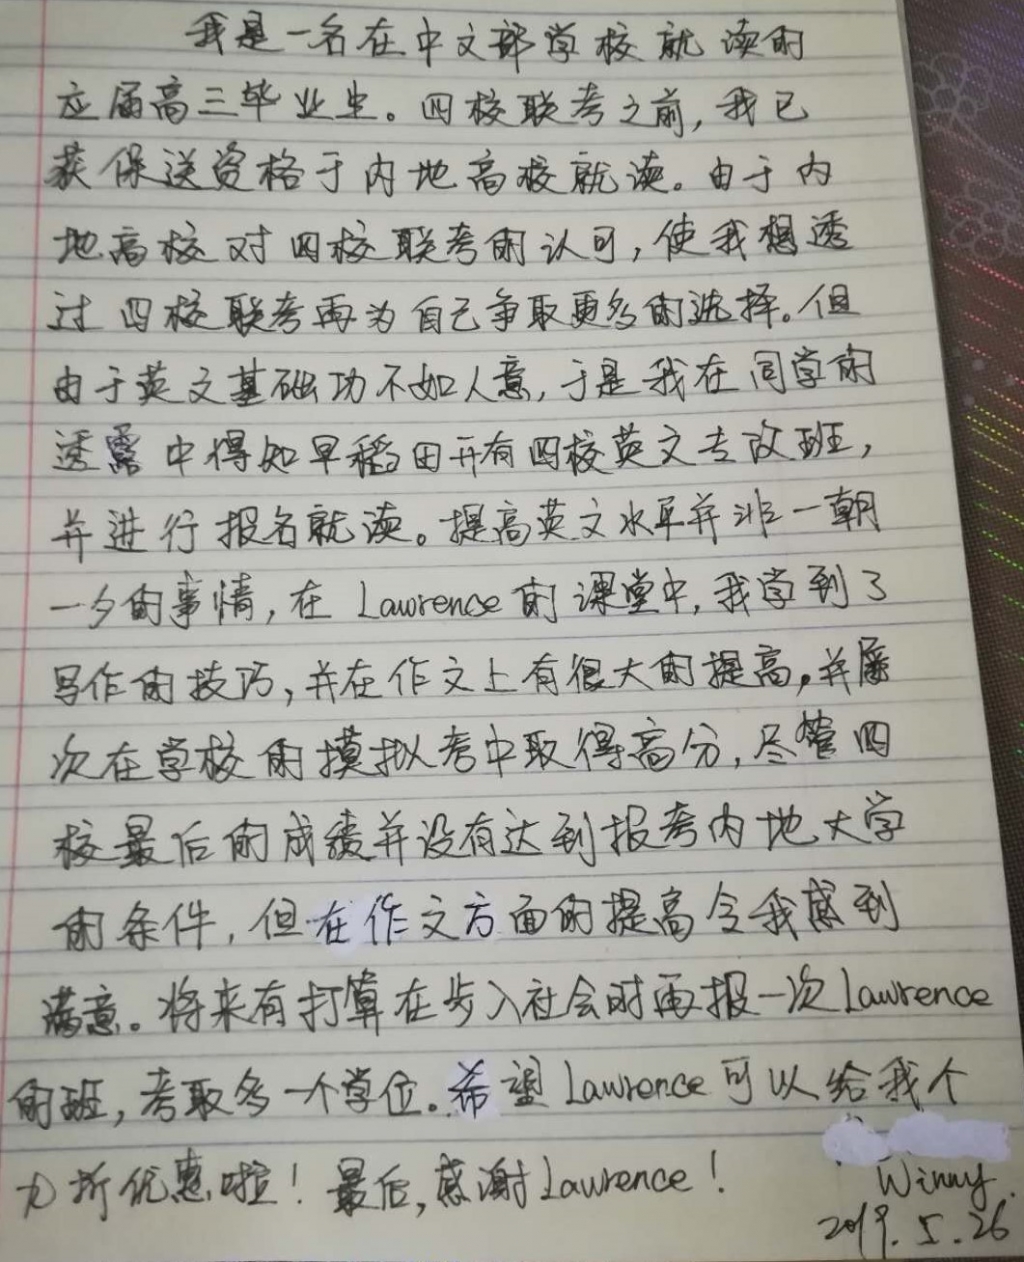 我是一名在中文部学校就读的
应届高三毕业生。四校联考之前，我已
获保送资格于内地高校就读。由于内
地高校对四校联考的认可，使我想透
过四校联考再为自己争取更多的选择。但
由于英文基础功不如人意，于是我在同学的
透露中得知早稻田开有四校英文专改班，
并进行报名就读。提高英文水平并非一朝
一夕的事情，在Lawrence的课堂中，我学到了
写作的技巧，并在作文上有很大的提高，并屡
次在学校的摸拟考中取得高分，尽管四
校最后的成绩并没有达到报考内地大学
的条件，但在作文方面的提高令我感到
满意。将来有打算在步入社会时再报一次Lawrence
的班，考取多一个学位。希望Lawrence可以给我个
九折优惠啦！最后，感谢Lawrence！
Winny.
2019.5.26